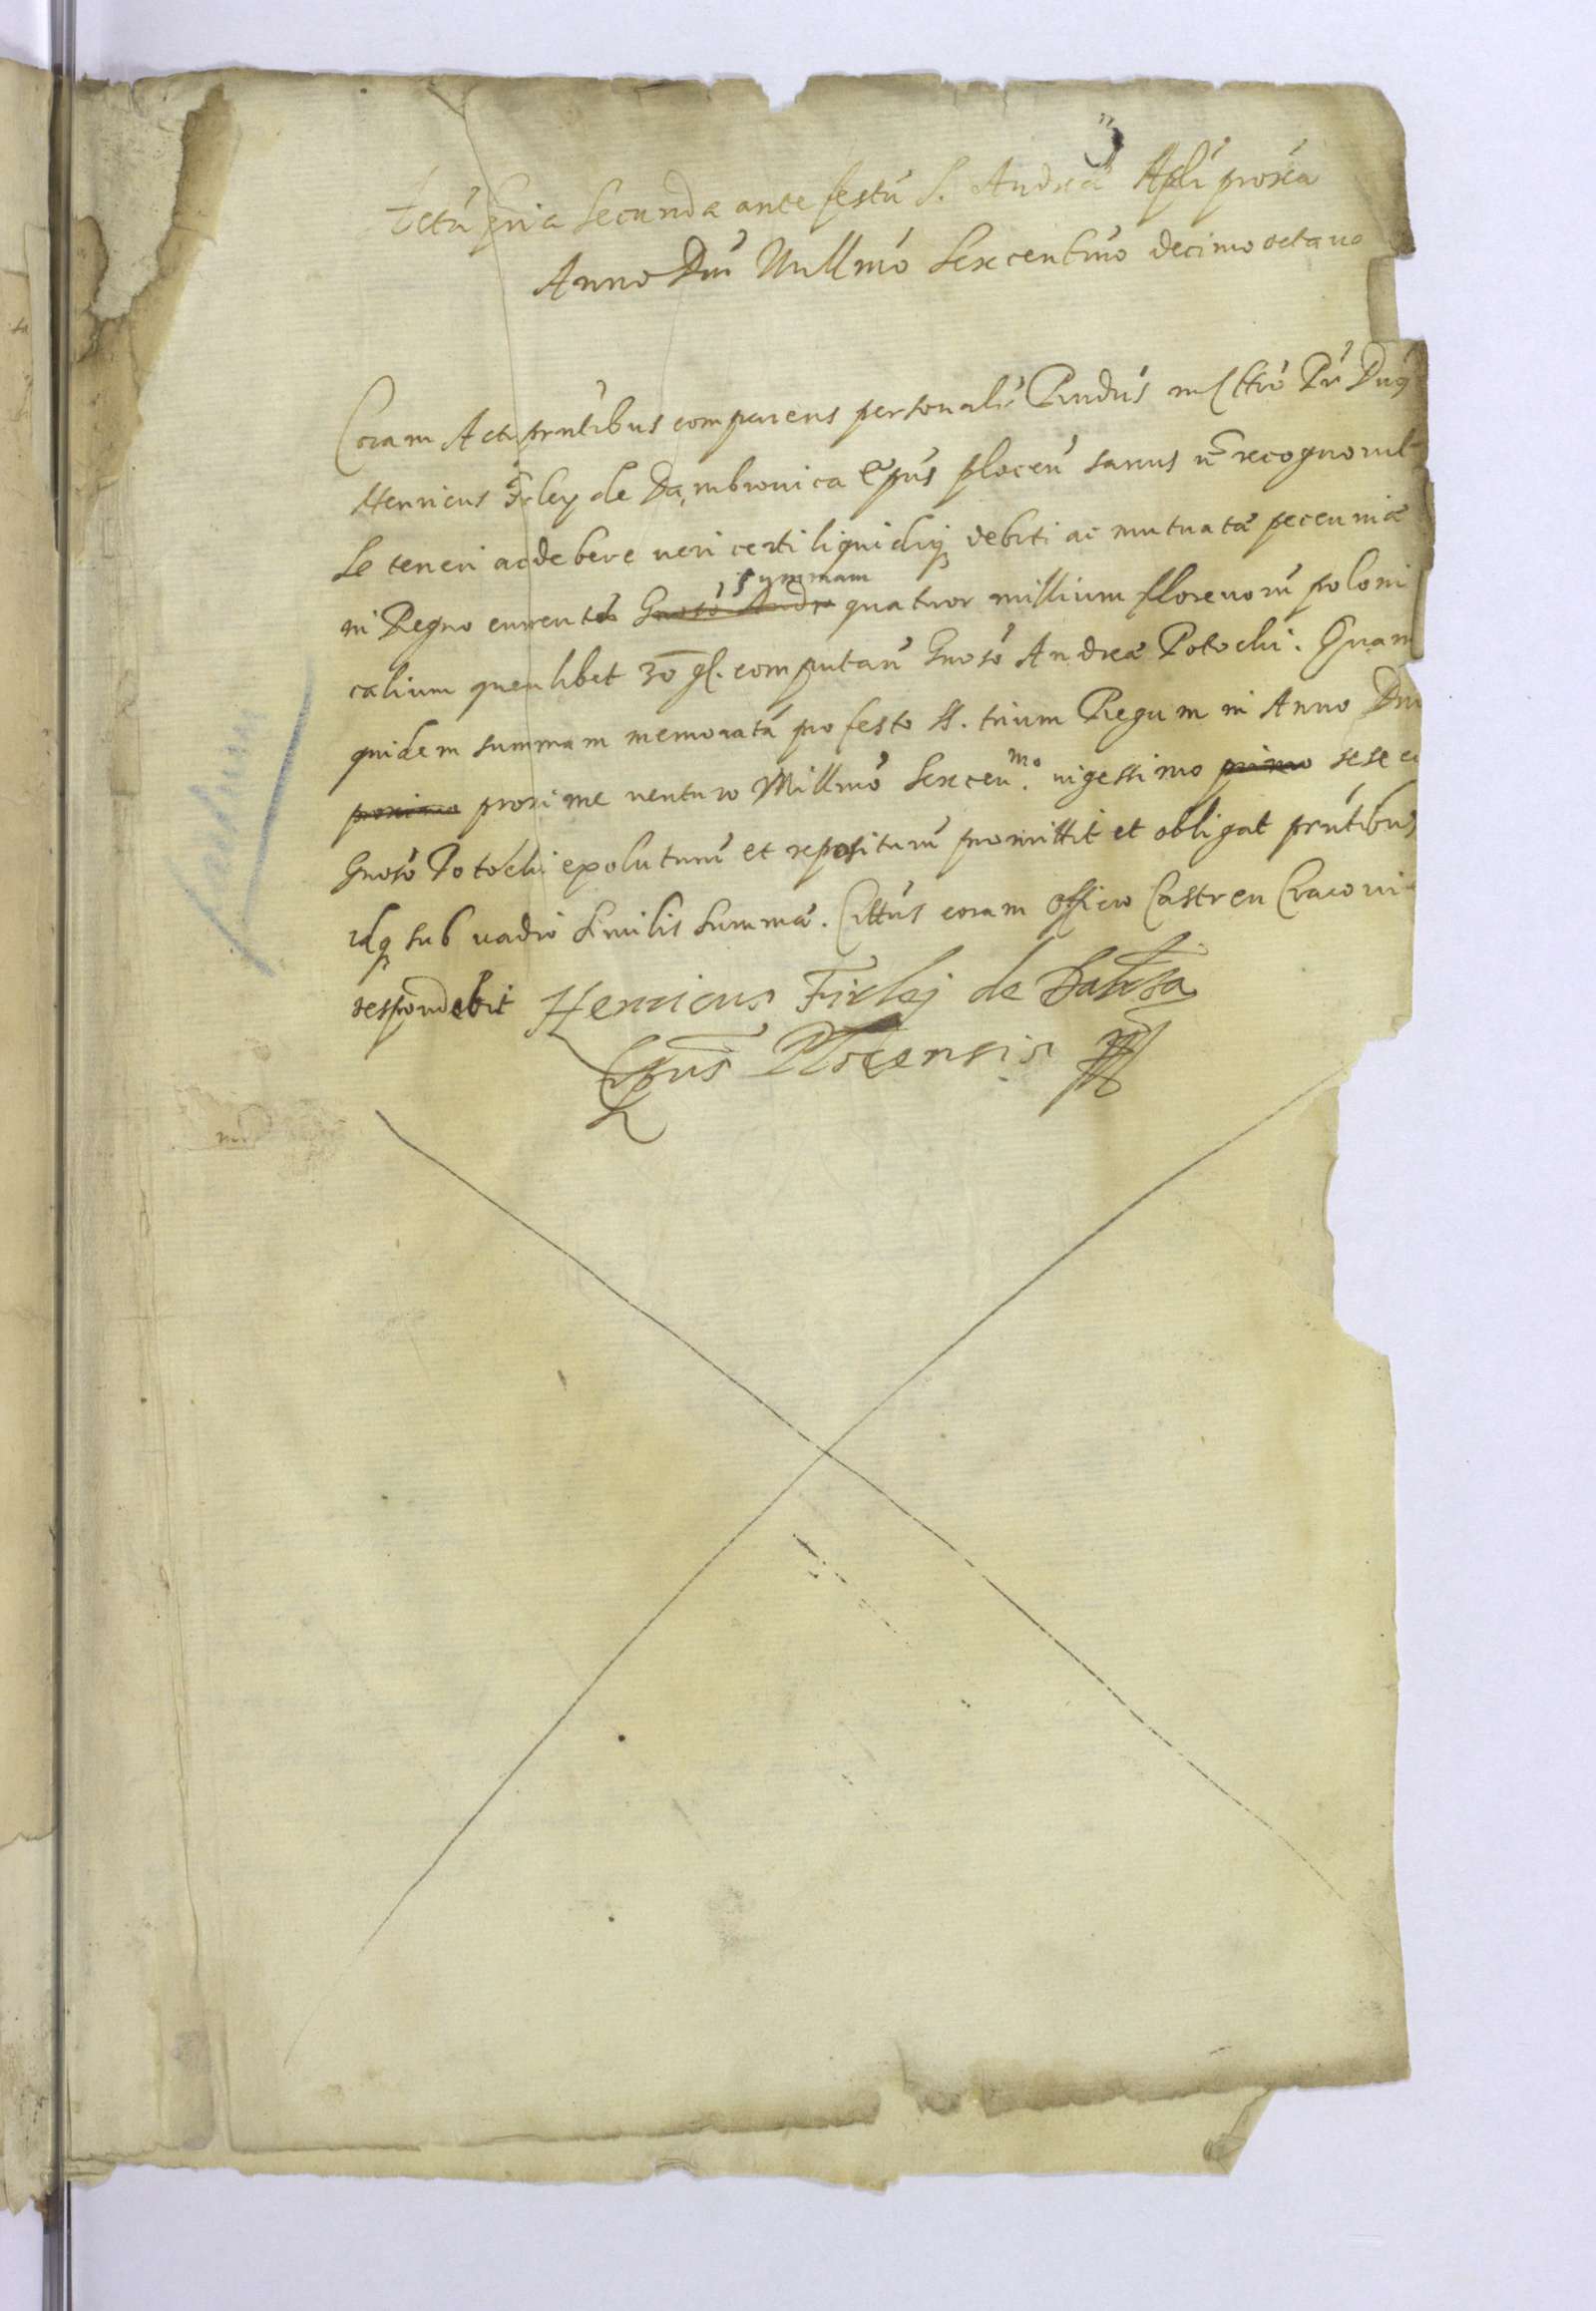 feria secunda ante festū S. Andreæ Apli proxia
Anno Dni Millmo Sexcentmo decimo octavo
Coram Actis pntibus comparens personalr Rndus in Chro Pr Dnus
Henricus Firley de Dambrovica Epus plocen sanus recognovit
Se teneri ac debere veri certi liquidiq debiti ac mutuatæ peccuniæ
in Regno currentis summam quatuor millium florenorū poloni
calium quenlibet 30 gl. computan Gnoso Andreæ Potocki. Quam
quidem summam memoratā pro festo SS. trium Regum in Anno Dni
proxime venturo Millmo Sexcenmo. vigessimo primo sese
Gnoso Potocki exoluturū et repositurū promittit et obligat pntibus
idq sub vadio similis summæ. Cittus coram officio Castren Cracovi
respondebit Henricus Firlej de Dabrowica
Epus Plocensis